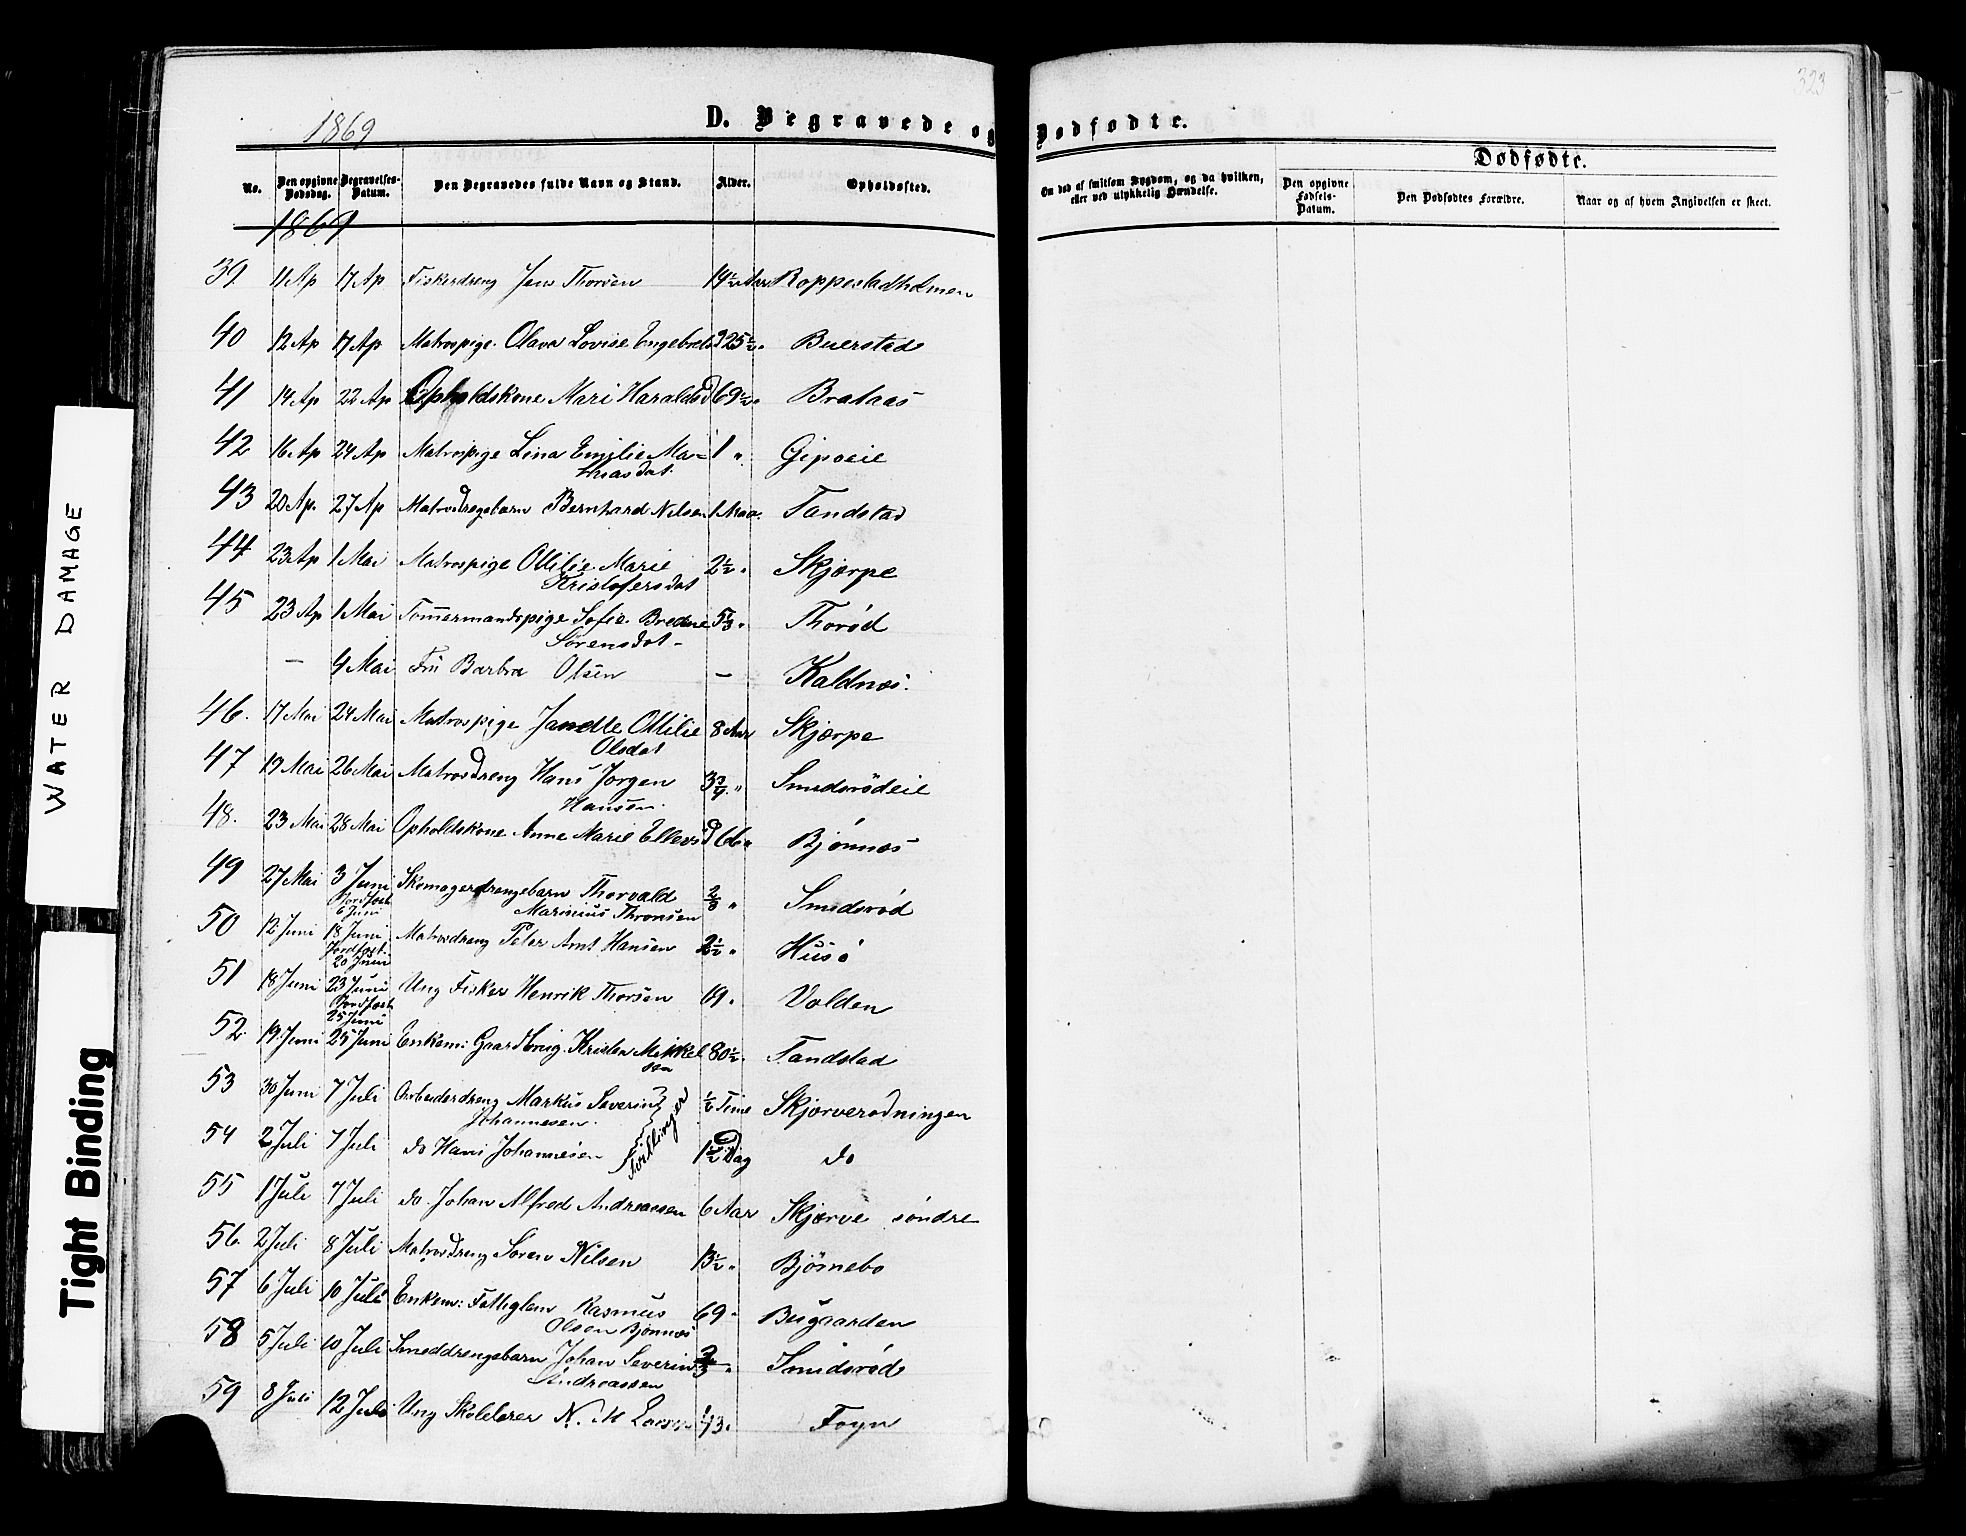 323
1869
D. Begravede og Dødfødte.
No. Den opgivne Dødsdag. Begravelses-Datum. Den Begravedes fulde Navn og Stand. Alder. Opholdssted. Om død af smitsom Sygdom, og da hvilken, eller ved ulykkelig Hændelse. Dødfødte. Den opgivne Fødsels-Datum. Den Dødfødtes Forældre. Naar og af hvem Angivelsen er skeet.
1869
39 11 Ap 17 Ap Fiskerdreng Jens Thorsen 14½ Aar Roppestadholmen
40 12 Ap 17 Ap Matrospige Olava Lovise Engebretsd 25½ " Buerstad
41 14 Ap 22 Ap Opholdskone Mari Haraldsd 69½ " Brataas
42 16 Ap 24 Ap Matrospige Lina Emilie Ma-
thiasdat. 1 " Gipøeie
43 20 Ap. 27 Ap Matrosdrengebarn Bernhard Nilsen 1 Maa. Tandstad
44 23 Ap 1 Mai Matrospige Ottilie Marie
Kristofersdat 2½ " Skjærpe
45 23 Ap 1 Mai Tømermandspige Sofie Bredine
Sørensdat 5⅓ " Thorød
— 4 Mai Fru Barbra Olsen — Kaldnæs.
46. 17 Mai 24 Mai Matrospige Janelle Ottilie
Olsdat 8 Aar Skjærpe
47 19 Mai 26 Mai Matrosdreng Hans Jørgen
Hansen. 3¾ " Smidsrødeie
48. 23 Mai 28 Mai Opholdskone Anne Marie Ellevsd 66 " Bjønnæs
49 27 Mai 3 Juni Skomagerdrengebarn Thorvald
Jordfæst 6 Juni Marinius Thronsen ⅔ " Smidsrød
50 12 Juni 18 Juni Matrosdreng Peter Arnt Hansen 2½ " Husø
Jordfæst. 20 Juni
51 18 Juni 23 Juni Ung Fisker Henrik Thorsen 19 " Volden
Jordfæst 25 Juni
52 19 Juni 25 Juni Enkem: Gaardbrug. Kristen Mikkel
sen 80½ " Tandstad
53 30 Juni 7 Juli Arbeiderdreng Markus Severin
Johannesen. ½ Time Skjærverødningen
54 2 Juli 7 Juli do Hans Johannesen Tvillinger 1½ Dag do
55 1 Juli 7 Juli do. Johan Alfred Andreassen 6 Aar Skjærve søndre
56. 2 Juli 8 Juli Matrosdreng Søren Nilsen 13½ " Bjørnebo
57 6 Juli 10 Juli Enkem: Fattiglem Rasmus
Olsen Bjønnæs 69 " Bugaarden
58 5 Juli 10 Juli Smeddrengebarn Johan Severin
Andreassen ⅔ " Smidsrød
59 8 Juli 12 Juli Ung Skolelærer N. M 43 " Foyn
WATER DAMAGE
Tight Binding